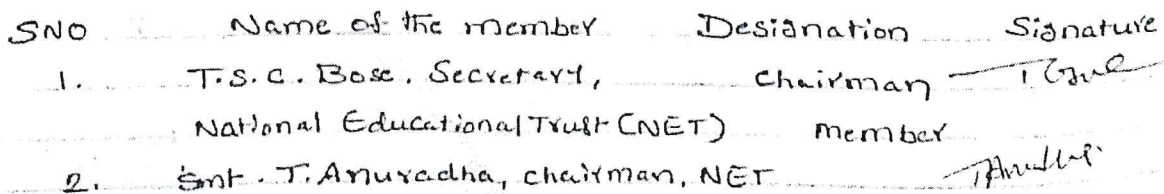 SNO Name of the member Designation Signature
1. T.S.C. Bose, Secretary, Chairman
National Educational Trust (NET) member
2. Smt. T. Anuradha, chairman, NET